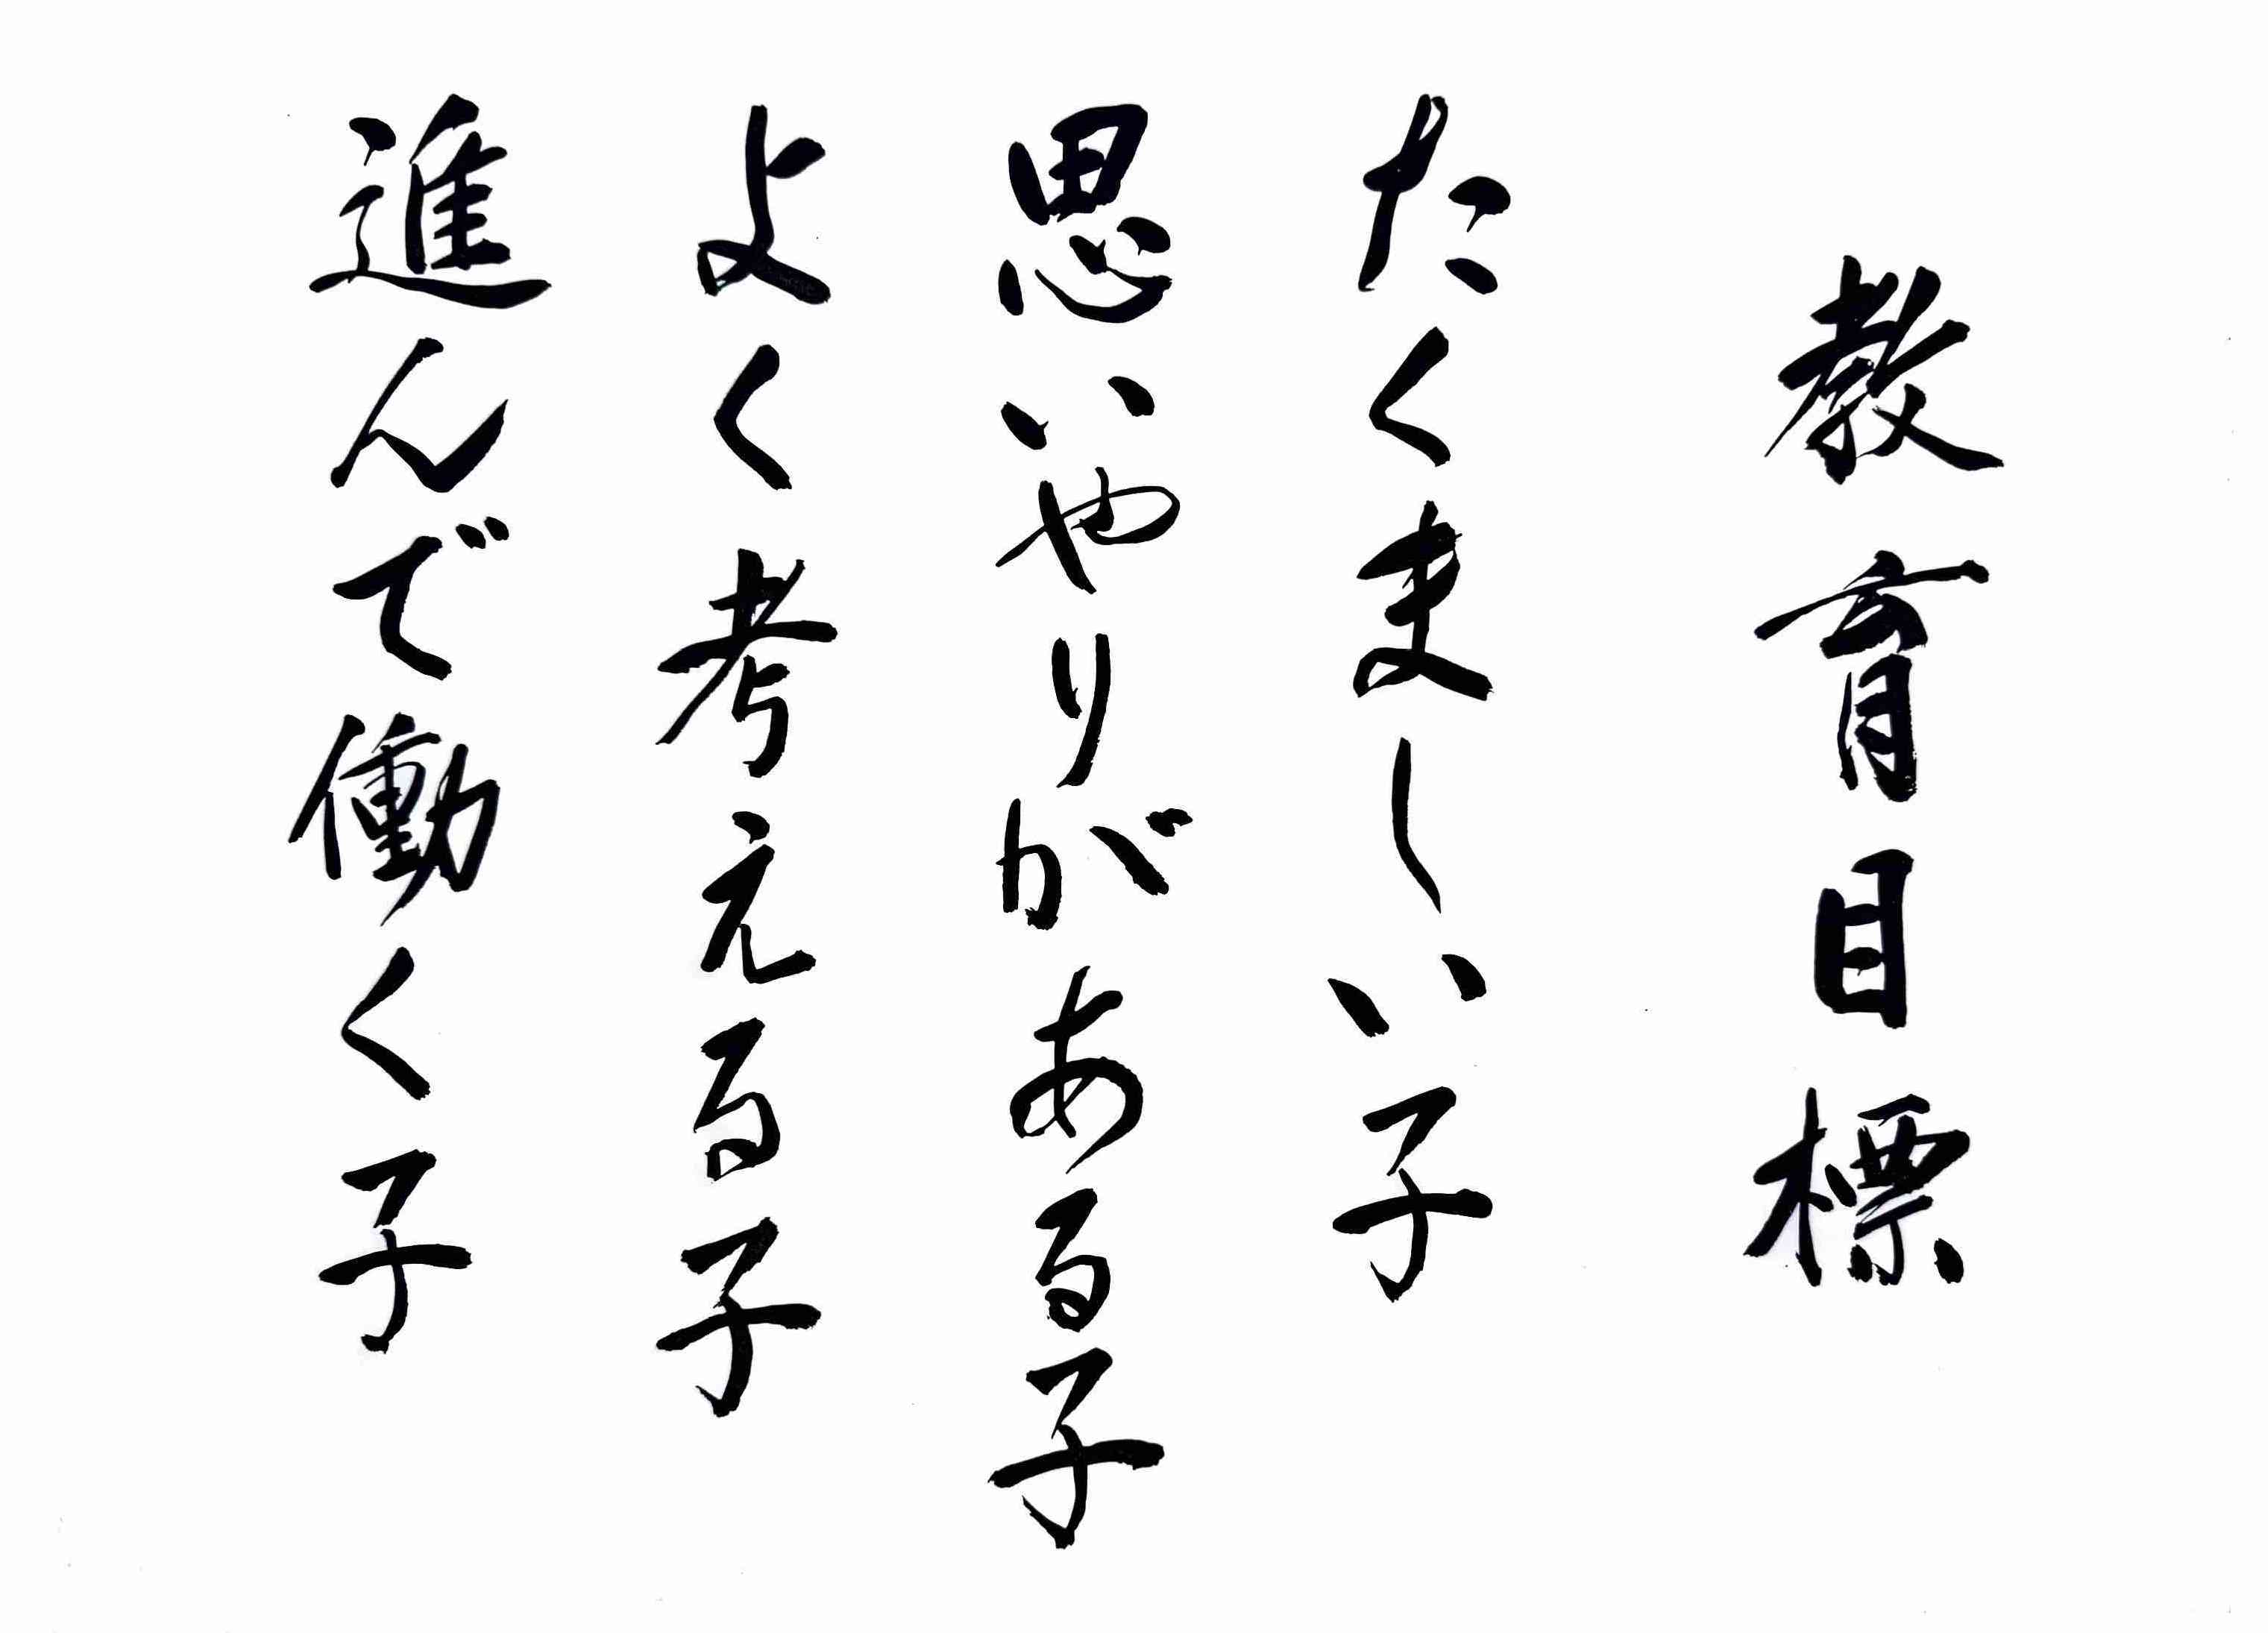 教育目標
たくましい子
思いやりがある子
よく考える子
進んで働く子